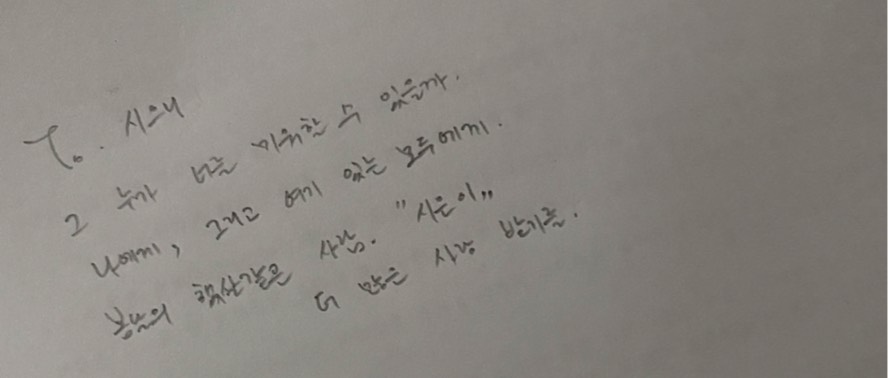 To. 시으니
그 누가 너를 미워할 수 있을까.
나에게, 그리고 여기 있는 모두에게.
봄날의 햇살같은 사람. "시은이"
더 많은 사랑 받기를.